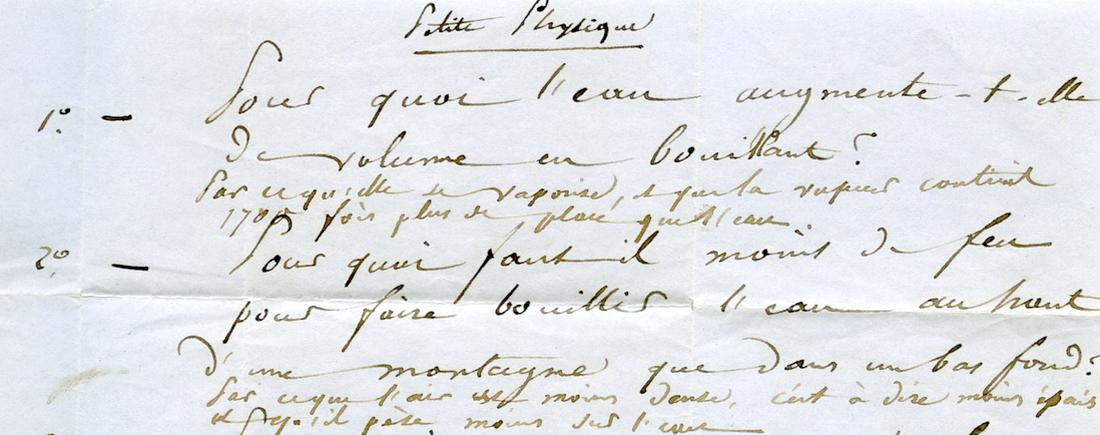 Petite Physique
1º. — Pour quoi l'eau augmente-t-elle
de volume en bouillant ?
Par ce qu'elle se vaporise, et que la vapeur contient
fois plus de place que l'eau.
2º. — Pour quoi faut il moins de feu
pour faire bouillir l'eau au haut
d'une montagne que dans un bas fond ?
Par ce que l'air est moins dense, c'est à dire moins épais
et qu'il pèse moins sur l'eau